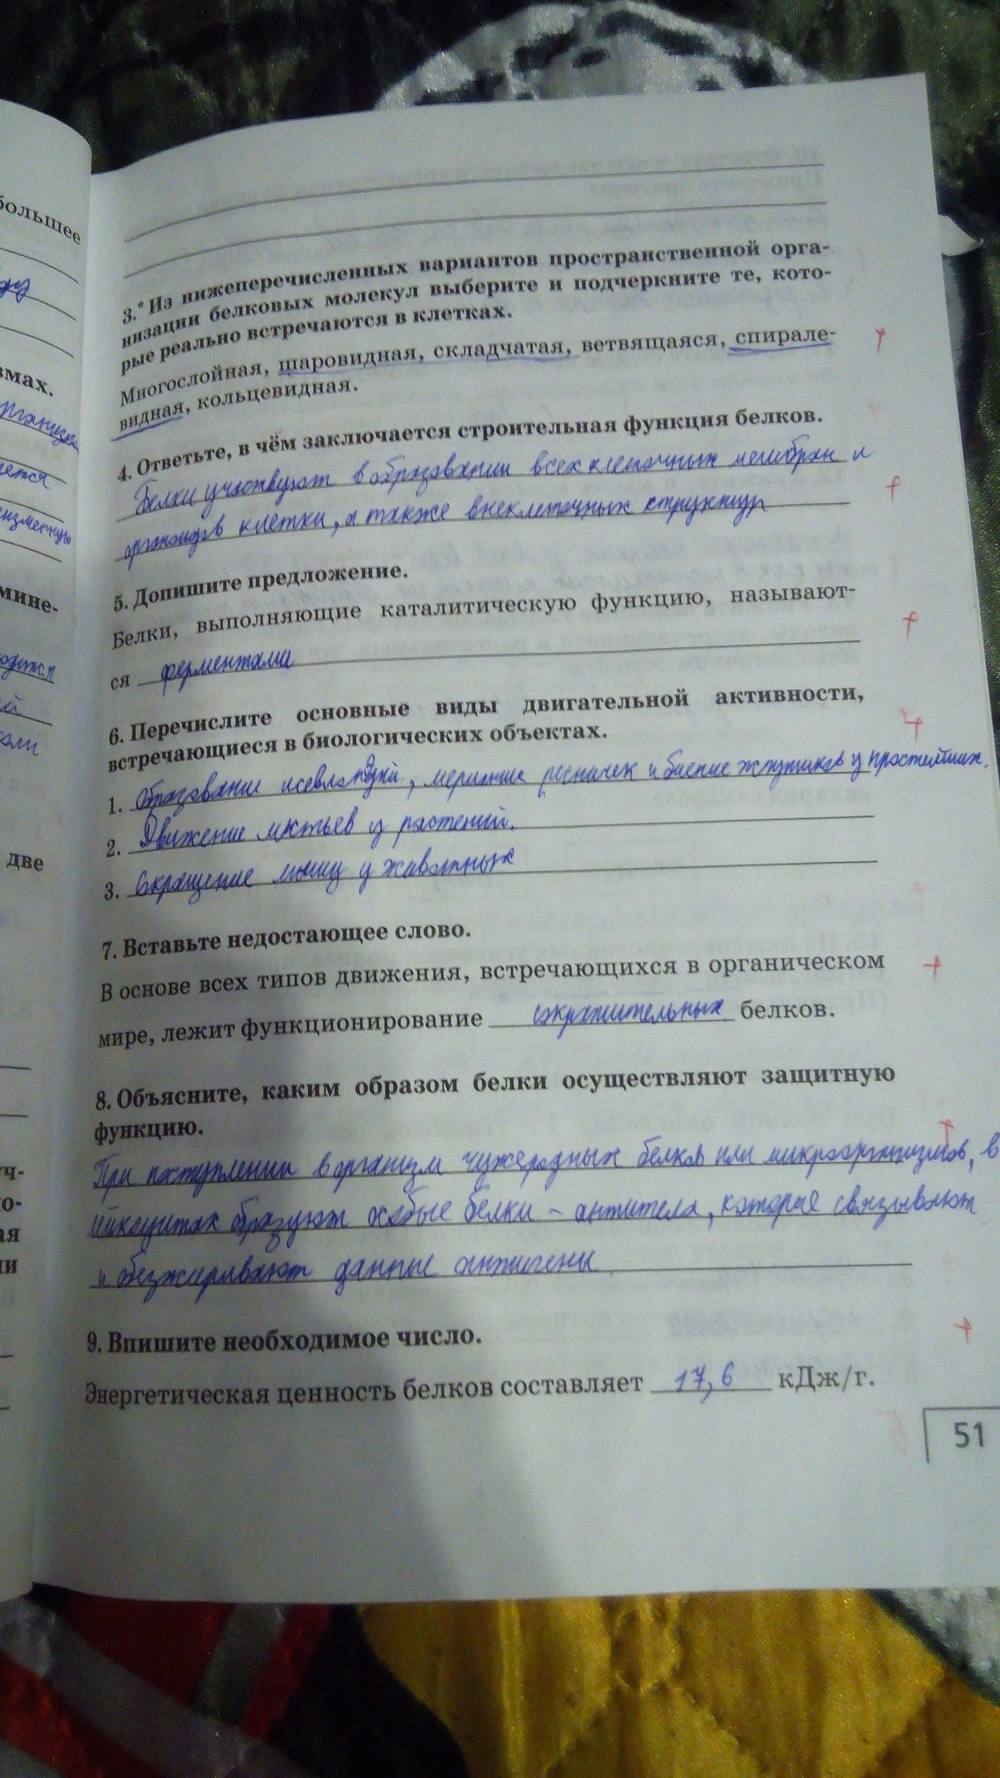 большее
3.* Из нижеперечисленных вариантов пространственной орга-
низации белковых молекул выберите и подчеркните те, кото-
рые реально встречаются в клетках.
Многослойная, шаровидная, складчатая, ветвящаяся, спирале-
видная, кольцевидная.
4. Ответьте, в чём заключается строительная функция белков.
Белки участвуют в образовании всех клеточных мембран и
органоидов клетки, а также внеклеточных структур
5. Допишите предложение.
Белки, выполняющие каталитическую функцию, называют-
ся ферментами
6. Перечислите основные виды двигательной активности,
встречающиеся в биологических объектах.
1. Образование псевдоподий, мерцание ресничек и биение жгутиков у простейших.
2. Движение листьев у растений.
3. Сокращение мышц у животных
7. Вставьте недостающее слово.
В основе всех типов движения, встречающихся в органическом
мире, лежит функционирование сократительных белков.
8. Объясните, каким образом белки осуществляют защитную
функцию.
При поступлении в организм чужеродных белков или микроорганизмов, в
образуют особые белки - антитела, которые связывают
и обезжиривают данные антигены
9. Впишите необходимое число.
Энергетическая ценность белков составляет 17,6 кДж/г.
51
змах.
мине-
две